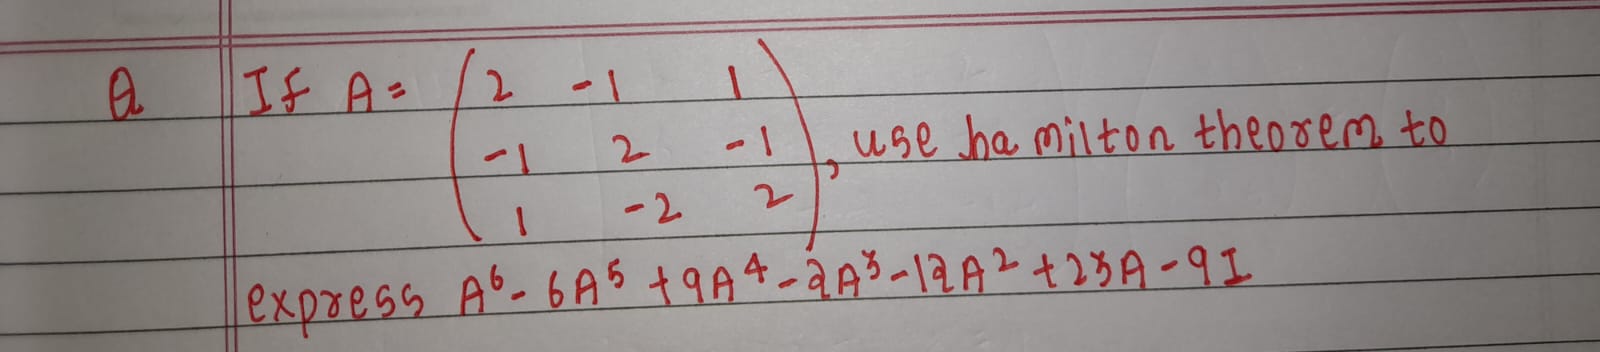 Q If A = ( 2 -1 1
-1 2 -1
1 -2 2 ), use ha milton theorem to
express A⁶ - 6A⁵ + 9A⁴ - 2A³ - 12A² + 23A - 9I